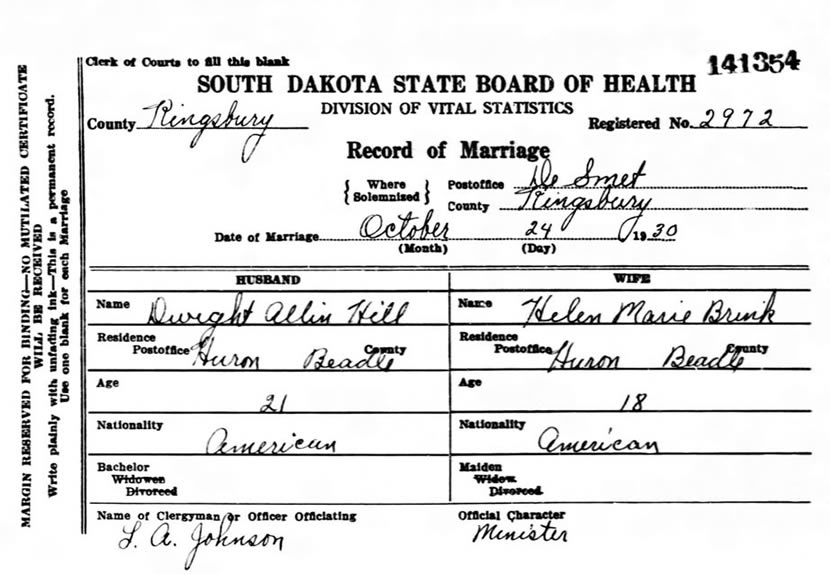 Clerk of Courts to fill this blank
141354
SOUTH DAKOTA STATE BOARD OF HEALTH
DIVISION OF VITAL STATISTICS
County Kingsbury
Registered No. 2972
Record of Marriage
Where Solemnized
Postoffice De Smet
County Kingsbury
Date of Marriage October 24 1930
(Month) (Day)
HUSBAND WIFE
Name Dwight Allin Hill Name Helen Marie Brink
Residence Residence
Postoffice Huron Beadle County Postoffice Huron Beadle County
Age 21 Age 18
Nationality American Nationality American
Bachelor Maiden
Widower Widow
Divorced Divorced
Name of Clergyman or Officer Officiating Official Character
L. A. Johnson Minister
MARGIN RESERVED FOR BINDING—NO MUTILATED CERTIFICATE
WILL BE RECEIVED
Write plainly with unfading ink—This is a permanent record.
Use one blank for each Marriage